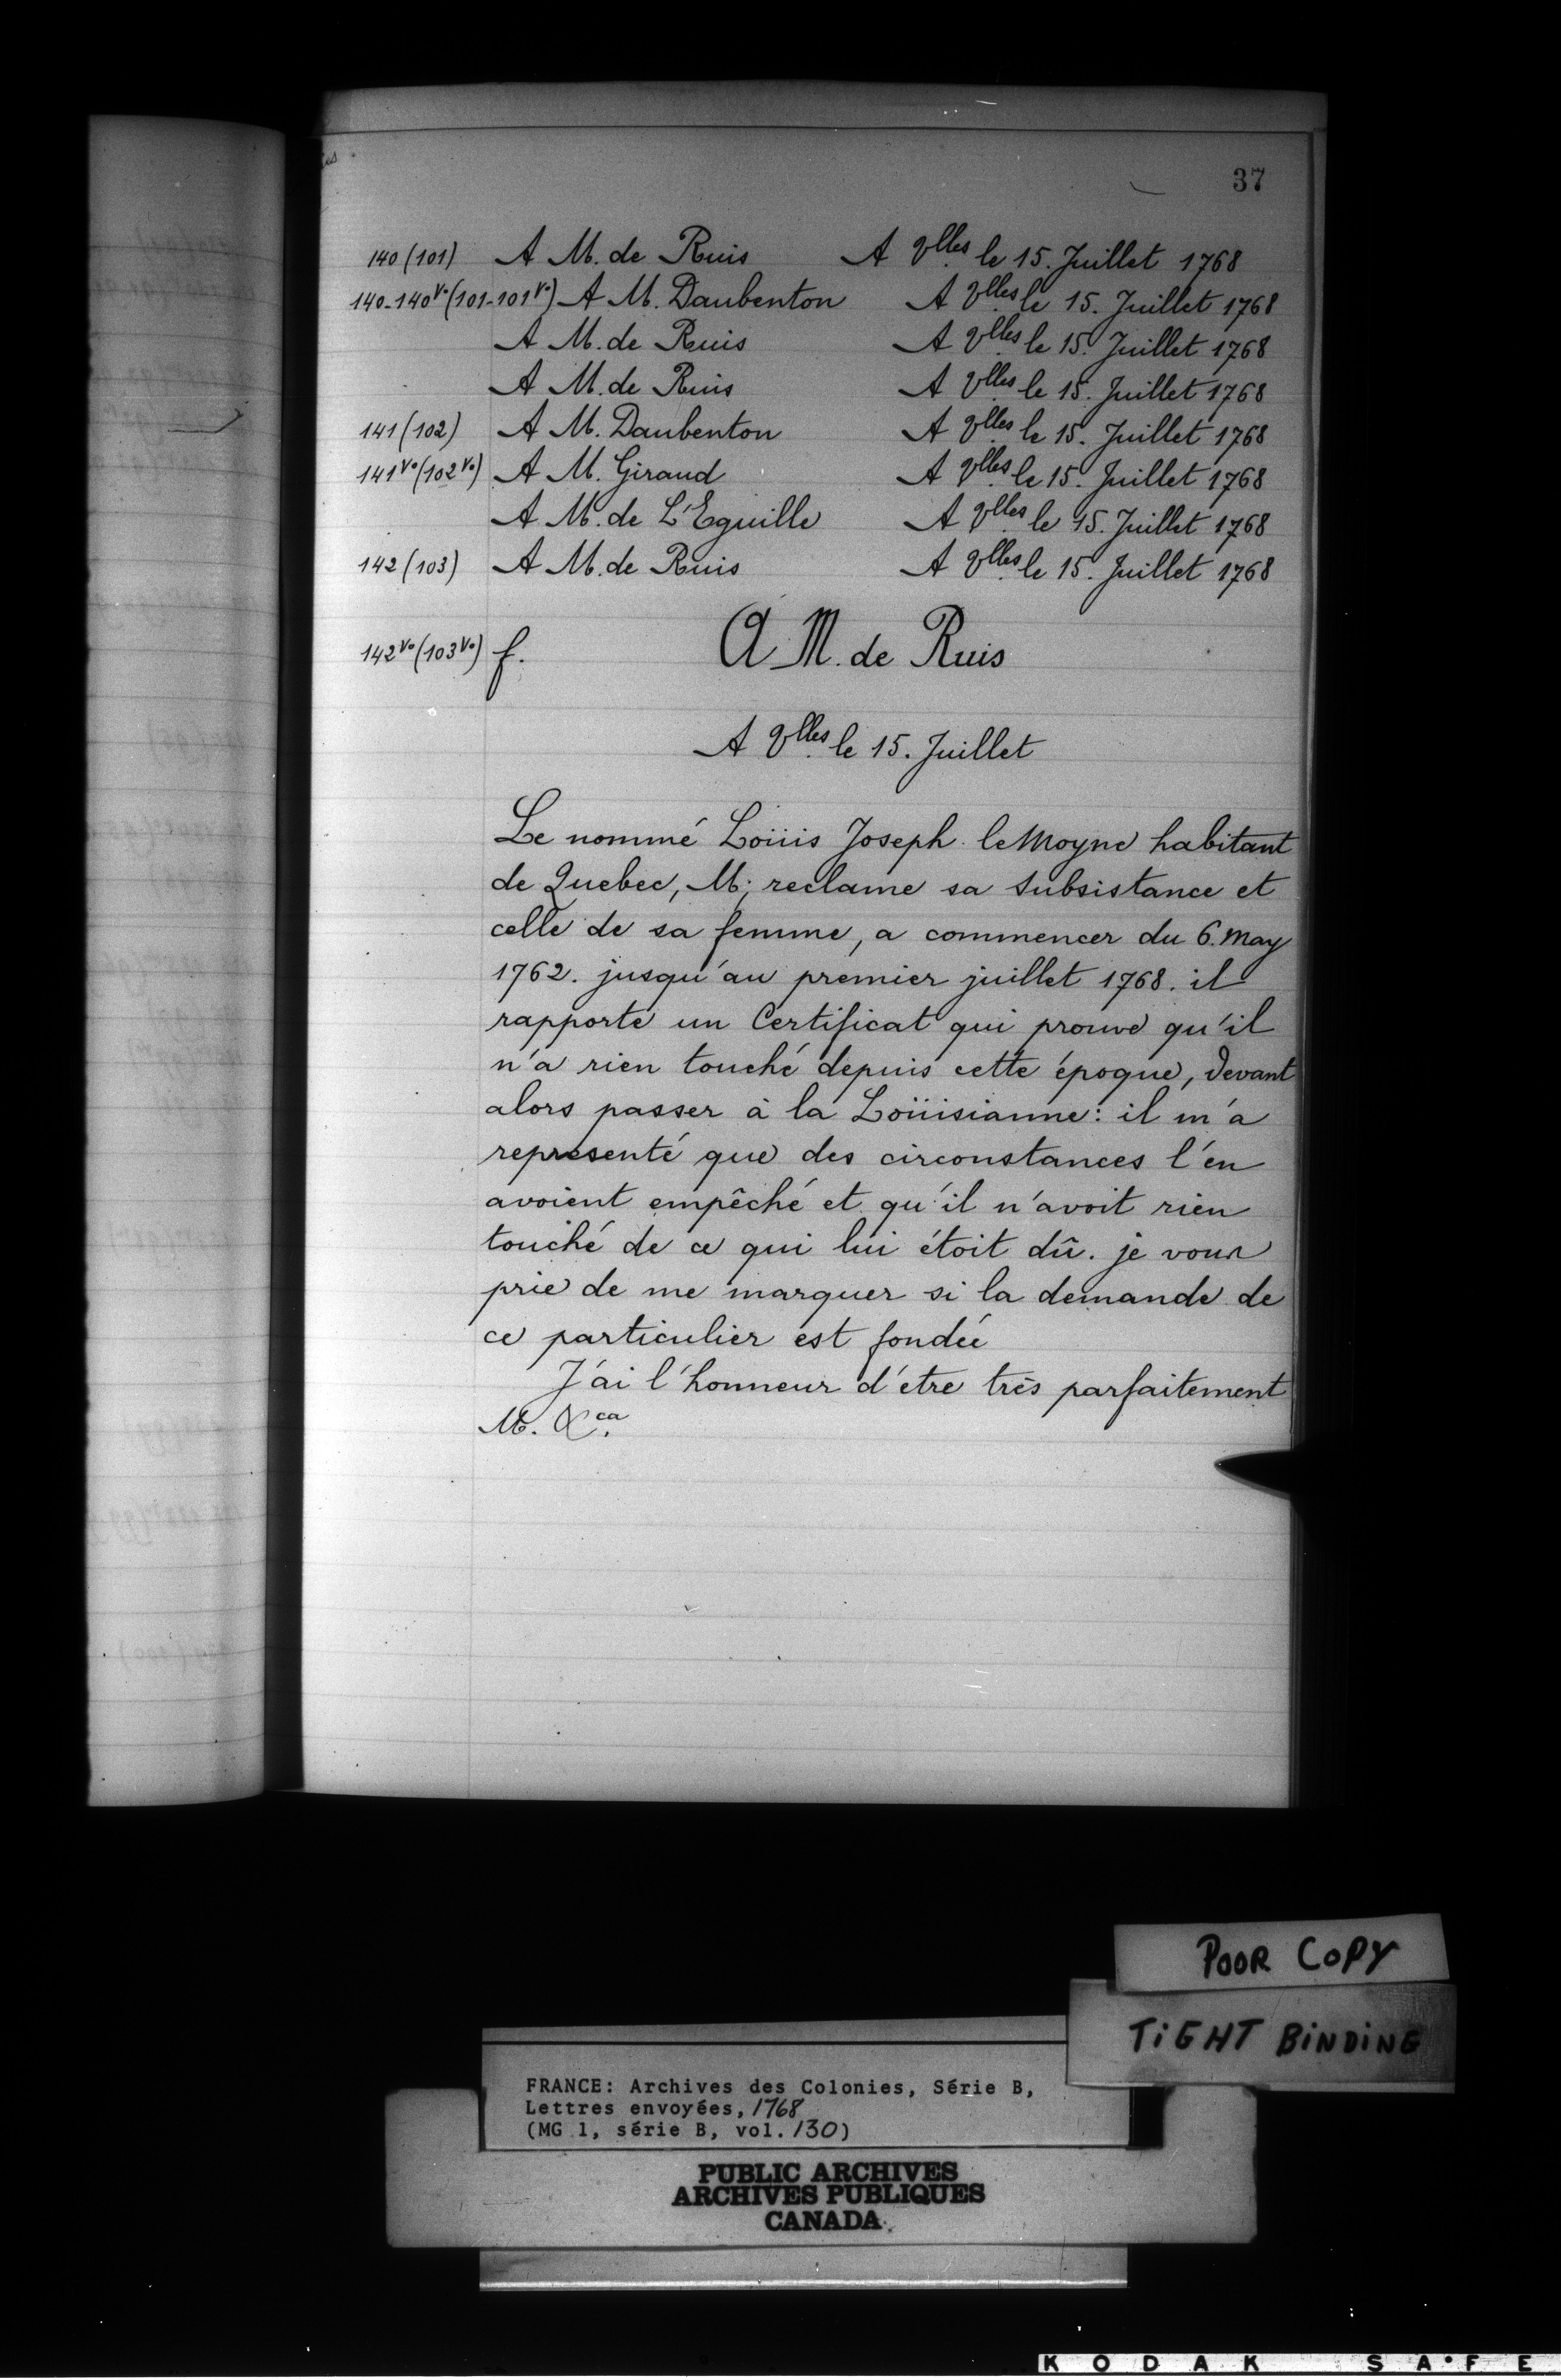 37
140 (101) A M. de Ruis A Vlles le 15. Juillet 1768
140-140Vo (101-101Vo) A M. Daubenton A Vlles le 15. Juillet 1768
A M. de Ruis A Vlles le 15. Juillet 1768
A M. de Ruis A Vlles le 15. Juillet 1768
141 (102) A M. Daubenton A Vlles le 15. Juillet 1768
141Vo (102Vo) A M. Giraud A Vlles le 15. Juillet 1768
A M. de L'Eguille A Vlles le 15. Juillet 1768
142 (103) A M. de Ruis A Vlles le 15. Juillet 1768
142Vo (103Vo) f. A M. de Ruis
A Vlles le 15. Juillet
Le nommé Loüis Joseph leMoyne habitant
de Quebec, M; reclame sa subsistance et
celle de sa femme, a commencer du 6. May
1762. jusqu'au premier juillet 1768. il
rapporte un Certificat qui prouve qu'il
n'a rien touché depuis cette époque, devant
alors passer à la Loüisianne: il m'a
representé que des circonstances l'en
avoient empêché et qu'il n'avoit rien
touché de ce qui lui étoit dû. je vous
prie de me marquer si la demande de
ce particulier est fondée
J'ai l'honneur d'etre très parfaitement
M. &ca.
POOR COPY
TIGHT BINDING
FRANCE: Archives des Colonies, Série B,
Lettres envoyées, 1768
(MG 1, série B, vol. 130)
PUBLIC ARCHIVES
ARCHIVES PUBLIQUES
CANADA
KODAK SAFE